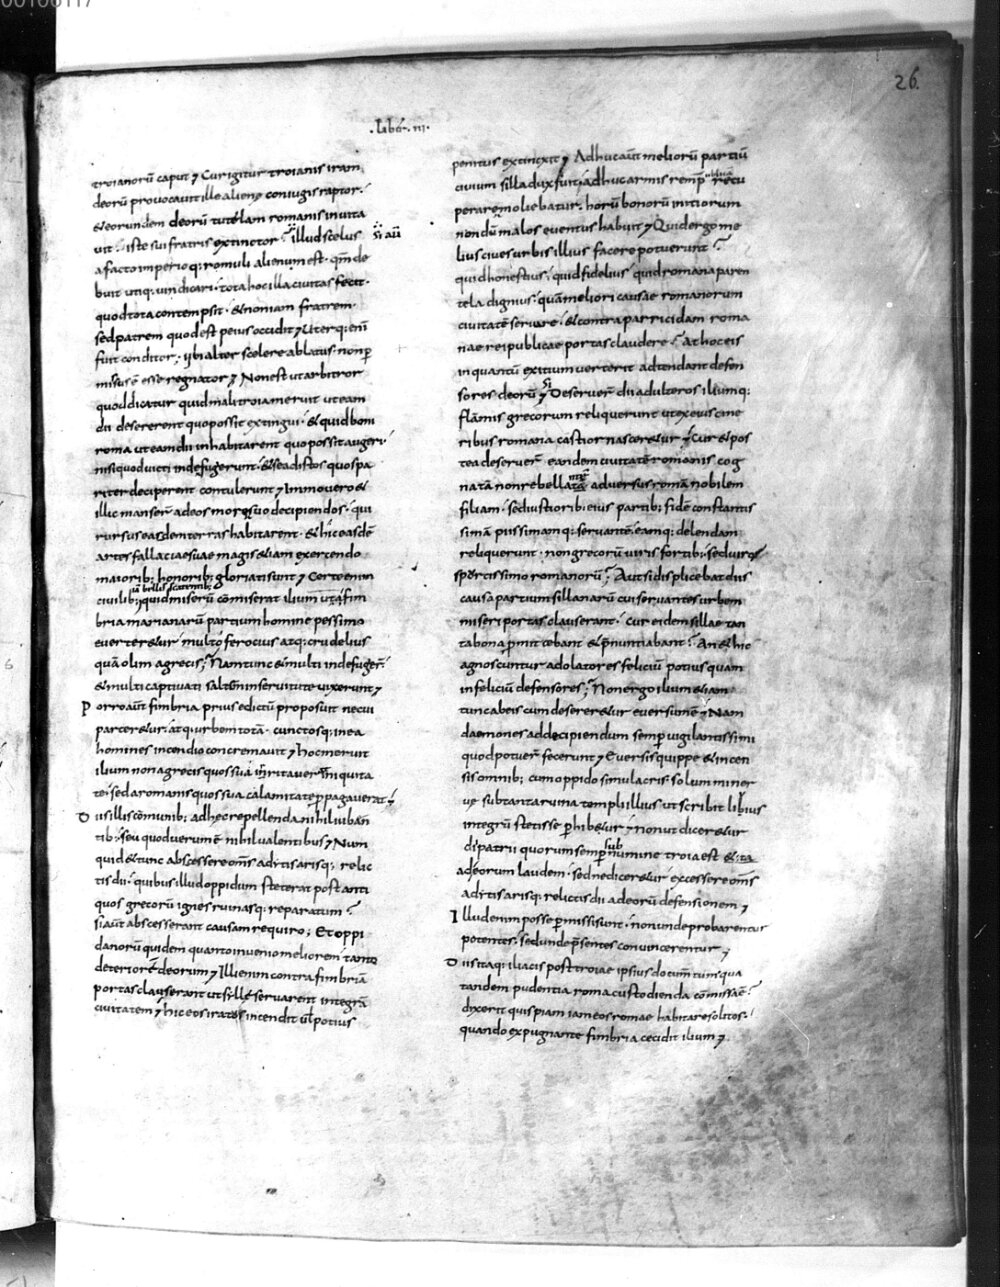 26
.Liber. III.
troianorū caput; Cur igitur troianis iram
deorū provocavit ille alienę coniugis raptor.
& eorundem deorū tutelam romanis invita
vit. iste sui fratris extinctor? illud scelus
Si aū
a facto imperioq; romuli alienum est. qm̄ de
buit utiq; vindicari. tota hoc illa civitas fecit.
quod tota contempsit. & non iam fratrem.
sed patrem quod est peius occidit; Uterq; enī
fuit conditor; ubi alter scelere ablatus. non p̄
missus ē esse regnator; Non est ut arbitror
quod dicatur quid mali troia meruit ut eam
dii desererent quo possit extingui. & quid boni
roma ut eam dii inhabitarent quo possit augeri.
nisi quod victi inde fugerunt. & se ad istos quos pa
riter deciperent contulerunt; Immo vero &
illic manserū ad eos more suo decipiendos. qui
rursus easdem terras habitarent. & hic easdē
artes fallaciae suae magis etiam exercendo
maiorib; honorib; gloriati sunt; Certe enim
civilib; iā bellis
quid miserū cōmiserat ilium ut a fim
bria marianarū partium homine pessimo
everter&ur multo ferocius atq; crudelius
quā olim a grecis; Nam tunc & multi inde fugert
& multi captivati saltē in servitute vixerunt;
Porro aūt fimbria prius edictū proposuit ne cui
parcer&ur. atq; urbem totā. cunctosq; in ea
homines incendio concremavit; Hoc meruit
ilium non a grecis quos sua irritaverat iniquita
te. sed a romanis quos sua calamitate ppagaverat;
Diis illis cōmunib; ad hęc repellenda nihil iuban
tib; seu quod verum ē nihil valentibus; Num
quid & tunc abscessere om̄s aditis arisq; relic
tis dii. quibus illud oppidum steterat post anti
quos grecorū ignes ruinasq; reparatum?
si aūt abscesserant causam requiro; Et oppi
danorū quidem quanto invenio meliorem tanto
deteriorē deorum; Illi enim contra fimbriā
portas clauserant ut sillę servarent integrā
civitatem; hic eos iratus incendit vel potius
penitus extinxit; Adhuc aūt meliorū partiū
civium silla dux fuit; adhuc armis remp̄ recu
perare moliebatur. horū bonorū initiorum
nondū malos eventus habuit; Quid ergo me
lius cives urbis illius facere potuerunt?
quid honestius. quid fidelius quid romana paren
tela dignius. quā meliori causae romanorum
civitatē servare. & contra parricidam roma
nae reipublicae portas claudere? At hoc eis
in quantū exitium verterit adtendant defen
sores deorū; Deseruer̄ dii adulteros iliumq;
flāmis grecorum reliquerunt ut ex eius cine
ribus romana castior nascer&ur; Cur & pos
tea deseruer̄ eandem civitatē romanis cog
natā non rebellantē adversus romā nobilem
filiam. sed iustiorib; eius partib; fidē constantis
simā piissimamq; servantē. eamq; delendam
reliquerunt. non grecorū viris fortib; sed viro
spurcissimo romanorū; Aut si displicebat diis
causa partium sillanarū cui servantes urbem
miseri portas clauserant. Cur eidem sillae tan
ta bona p̄mittebant & p̄nuntiabant? An & hic
agnoscuntur adolatores feliciū potius quam
infeliciū defensores; Non ergo ilium etiam
tunc ab eis cum deserer&ur eversum ē; Nam
daemones ad decipiendum semp̄ vigilantissimi
quod potuer̄ fecerunt; Eversis quippe & incen
sis omnib; cum oppido simulacris solum miner
ve sub tanta ruina templi illius ut scribit libius
integrū stetisse p̄hib&ur; non ut dicer&ur
di patrii quorum semp̄ sub numine troia est & ita
ad eorum laudem. sed ne dicer&ur excessere om̄s
aditis arisq; relictis dii ad eorū defensionem;
Illud enim posse p̄missi sunt. non unde probarentur
potentes. sed unde p̄sentes convincerentur;
Diis itaq; iliacis post troiae ipsius documtum qua
tandem pudentia roma custodienda cōmissa ē?
dixerit quispiam iam eos romae habitare solitos.
quando expugnante fimbria cecidit ilium;